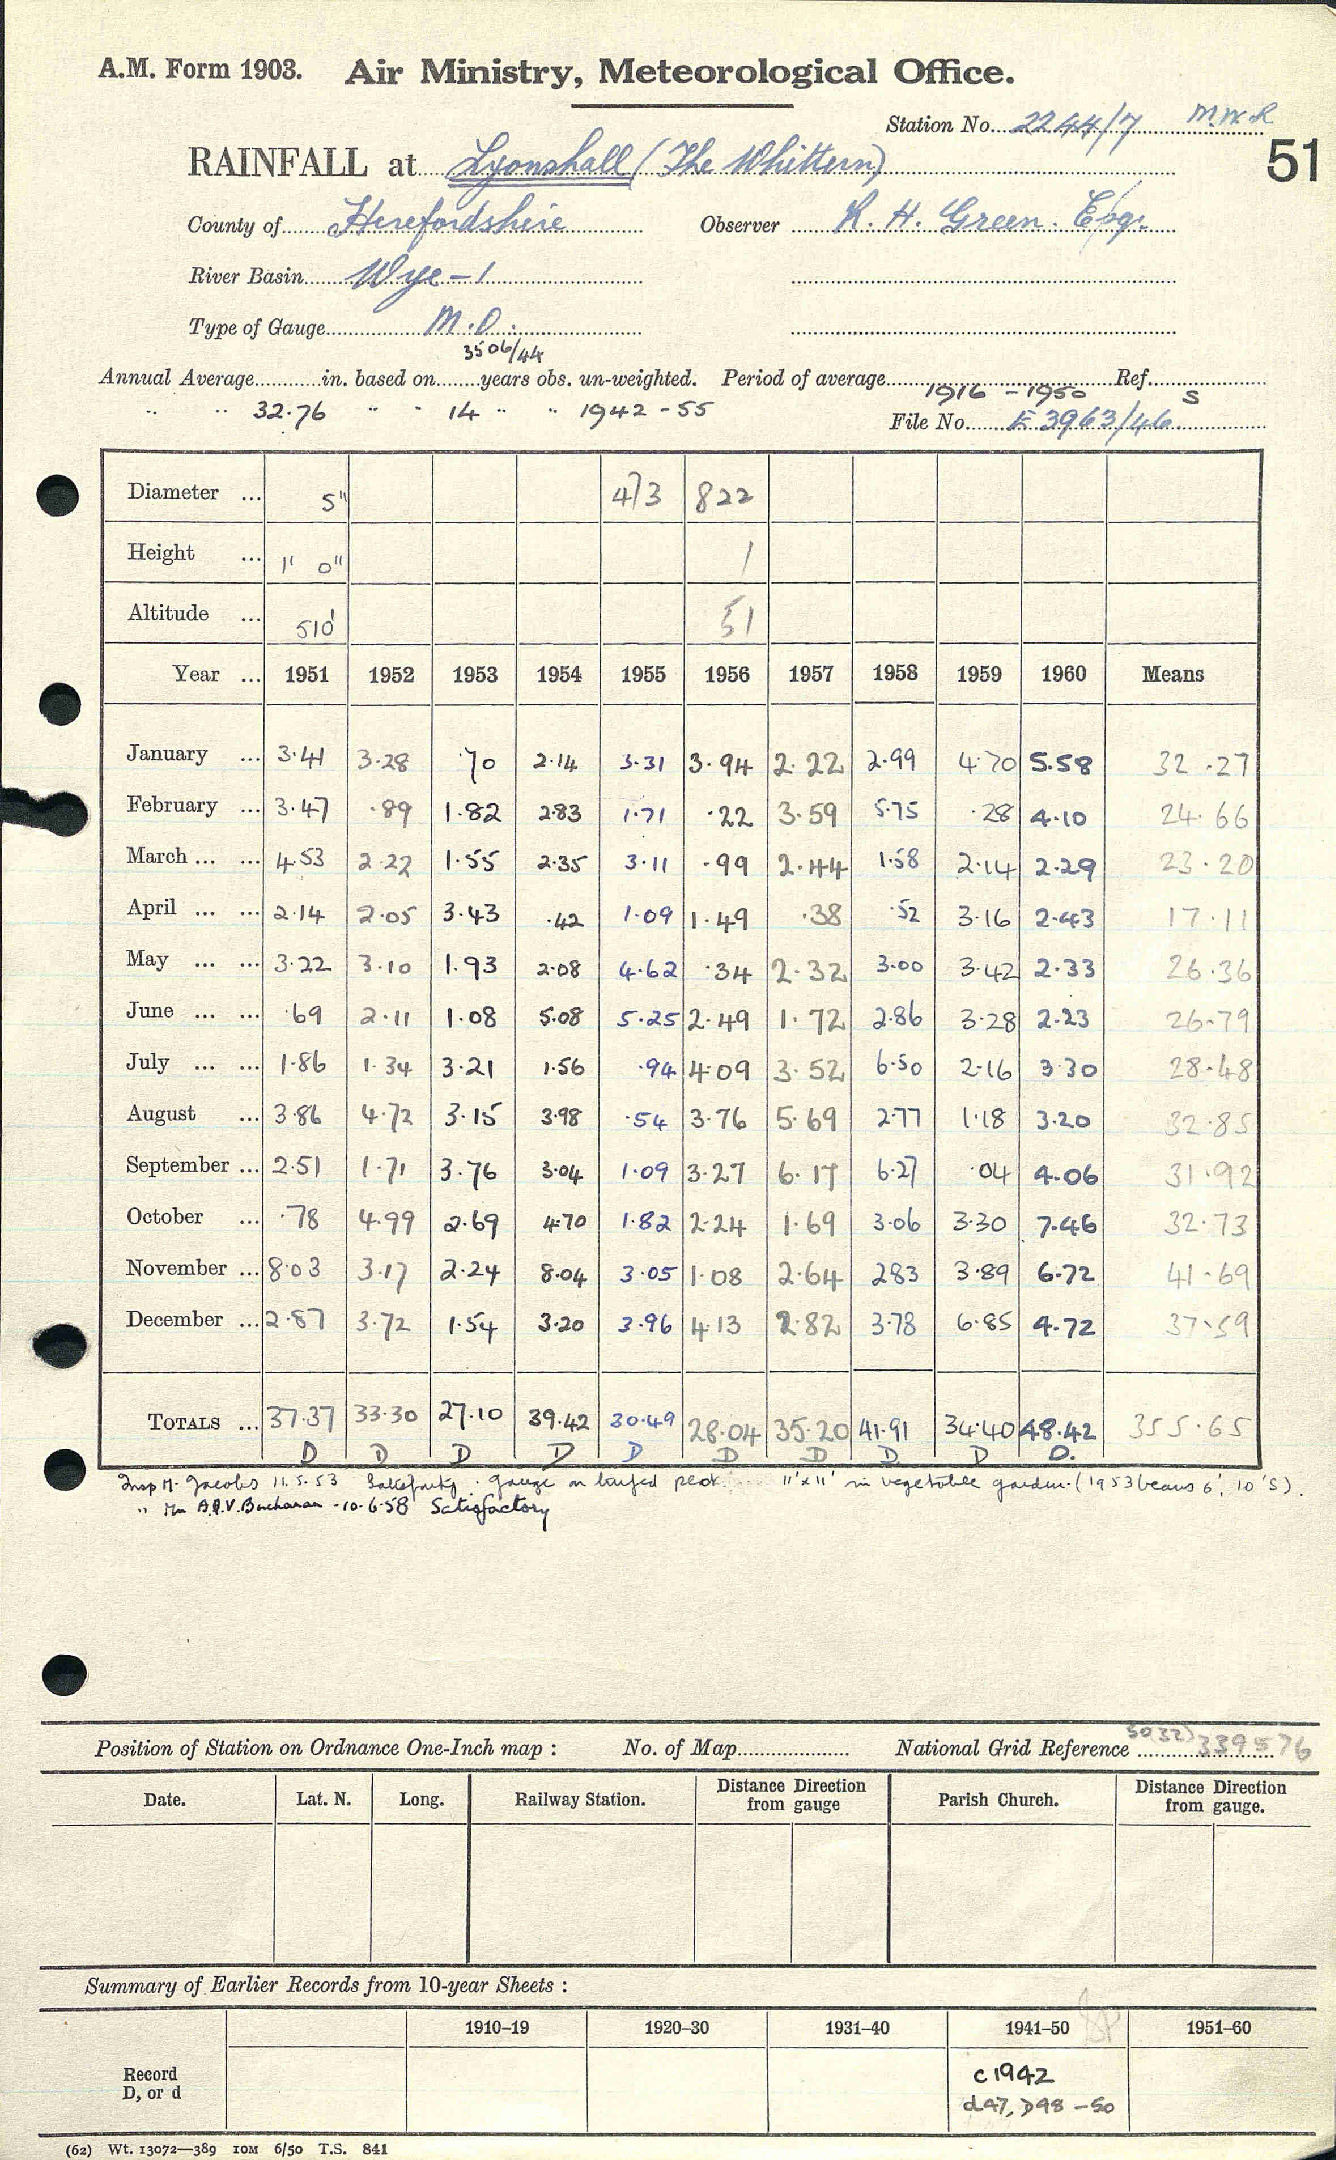 A.M. Form 1903. Air Ministry, Meteorological Office.
Station No. 2244/7 M.W.R
51
RAINFALL at Lyonshall (The Whittern)
County of Herefordshire Observer R. H. Green. Esq.
River Basin Wye - 1
Type of Gauge M.O.
3506/44
Annual Average in. based on years obs. un-weighted. Period of average 1916 - 1950 Ref. S
" " 32.76 " " 14 " " 1942 - 55
File No. E 3963/46
Diameter ... 5" 473 822
Height ... 1' 0" 1
Altitude ... 510' 51
Year ... 1951 1952 1953 1954 1955 1956 1957 1958 1959 1960 Means
January ... 3.41 3.28 .70 2.14 3.31 3.94 2.22 2.99 4.70 5.58 32.27
February ... 3.47 .89 1.82 2.83 1.71 .22 3.59 5.75 .28 4.10 24.66
March ... ... 4.53 2.22 1.55 2.35 3.11 .99 2.44 1.58 2.14 2.29 23.20
April ... ... 2.14 2.05 3.43 .42 1.09 1.49 .38 .52 3.16 2.43 17.11
May ... ... 3.22 3.10 1.93 2.08 4.62 .34 2.32 3.00 3.42 2.33 26.36
June ... ... .69 2.11 1.08 5.08 5.25 2.49 1.72 2.86 3.28 2.23 26.79
July ... ... 1.86 1.34 3.21 1.56 .94 4.09 3.52 6.50 2.16 3.30 28.48
August ... 3.86 4.72 3.15 3.98 .54 3.76 5.69 2.77 1.18 3.20 32.85
September ... 2.51 1.71 3.76 3.04 1.09 3.27 6.17 6.27 .04 4.06 31.92
October ... .78 4.99 2.69 4.70 1.82 2.24 1.69 3.06 3.30 7.46 32.73
November ... 8.03 3.17 2.24 8.04 3.05 1.08 2.64 2.83 3.89 6.72 41.69
December ... 2.87 3.72 1.54 3.20 3.96 4.13 2.82 3.78 6.85 4.72 37.59
TOTALS ... 37.37 33.30 27.10 39.42 30.49 28.04 35.20 41.91 34.40 48.42 355.65
D D D D D D D D D D.
Insp M. Jacobs 11.5.53 Satisfactory. gauge on 11'x11' in vegetable garden. (1953 beans 6', 10'S).
" Mr A.R.V. Buchanan - 10-6-58 Satisfactory
Position of Station on Ordnance One-Inch map : No. of Map National Grid Reference 50(32) 339576
Date. Lat. N. Long. Railway Station. Distance Direction from gauge Parish Church. Distance Direction from gauge.
Summary of Earlier Records from 10-year Sheets :
1910–19 1920–30 1931–40 1941–50 1951–60
Record D, or d
c1942
d47, D48 - 50
(62) Wt. 13072—389 10M 6/50 T.S. 841